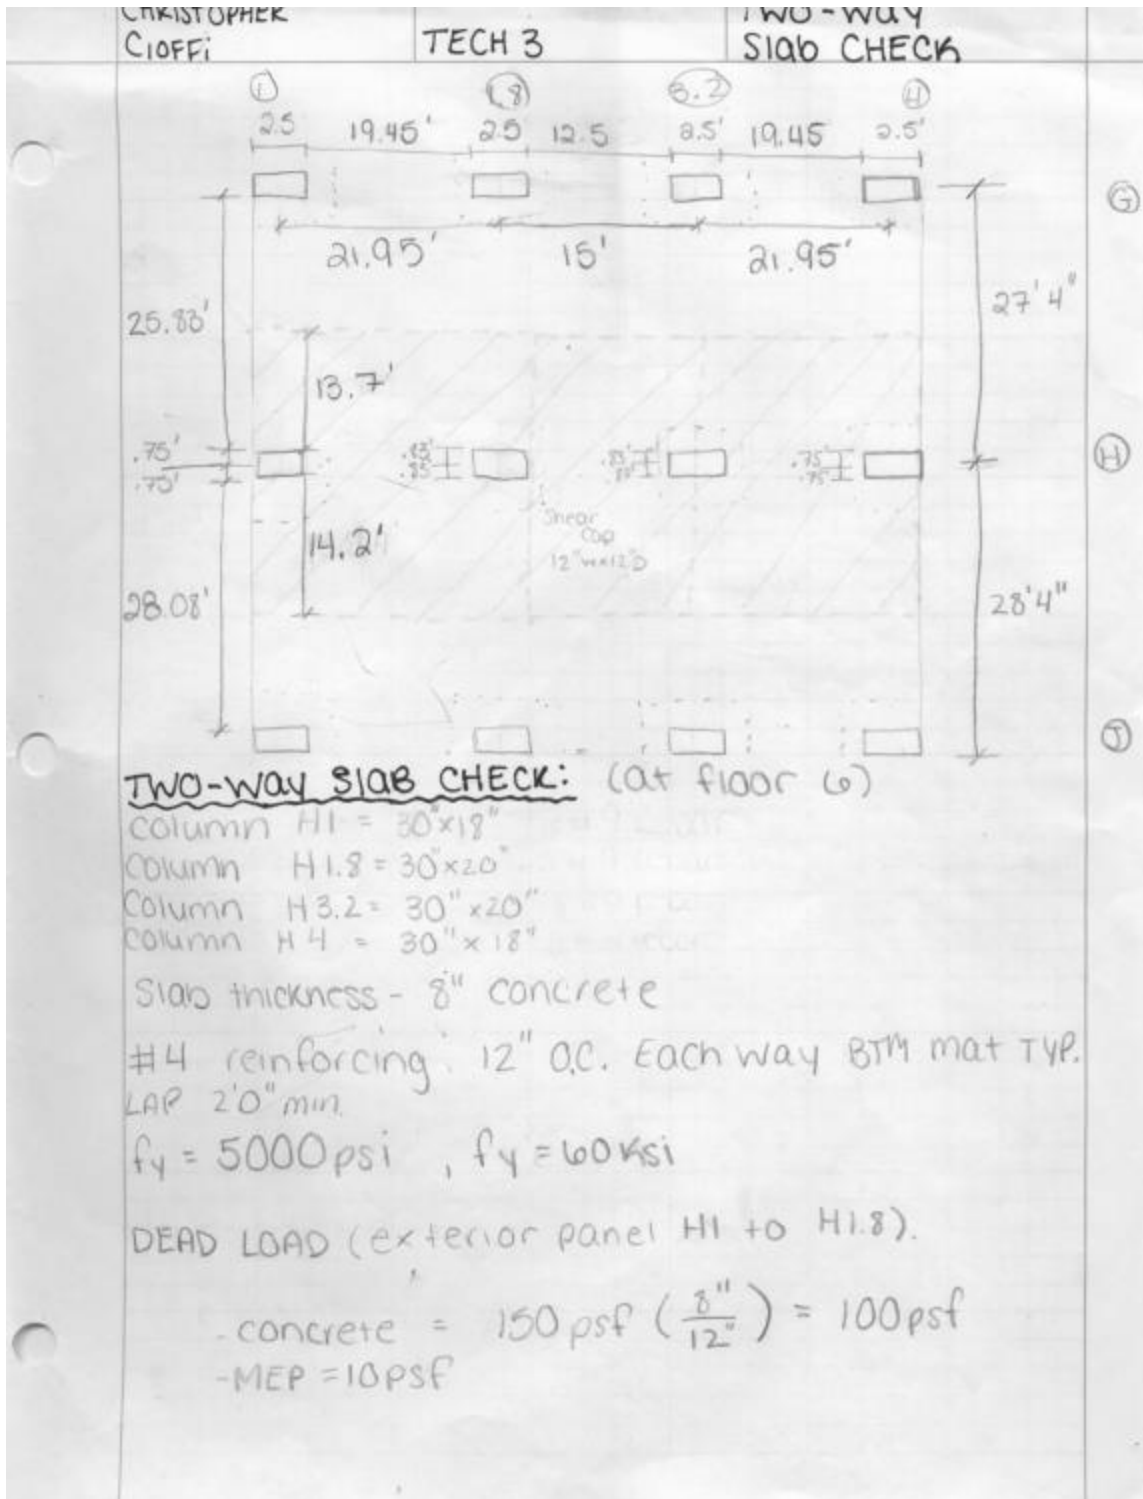 CHRISTOPHER
CIOFFi
TECH 3
TWO-WAY
Slab CHECK
1
1.8
3.2
4
2.5 19.45' 2.5 12.5 2.5' 19.45 2.5'
G
21.95' 15' 21.95'
27'4"
25.83'
13.7'
.75' .83' .83' .75'
.75' .85' .75'
H
Shear
Cap
12"wx12"D
14.2'
28.08'
28'4"
J
TWO-WAY SlAB CHECK: (at floor 6)
Column H1 = 30"x18"
Column H1.8 = 30"x20"
Column H3.2 = 30"x20"
Column H4 = 30"x18"
Slab thickness - 8" concrete
#4 reinforcing: 12" O.C. Each way BTM mat TYP.
LAP 2'0" min.
fy = 5000psi , fy = 60Ksi
DEAD LOAD (exterior panel H1 to H1.8).
- concrete = 150psf (8"/12") = 100psf
- MEP = 10psf